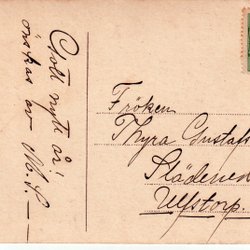 Gott nytt år!
önskas av M. S.
Fröken
Thyra Gustafs
Slädened
Ulfstorp.